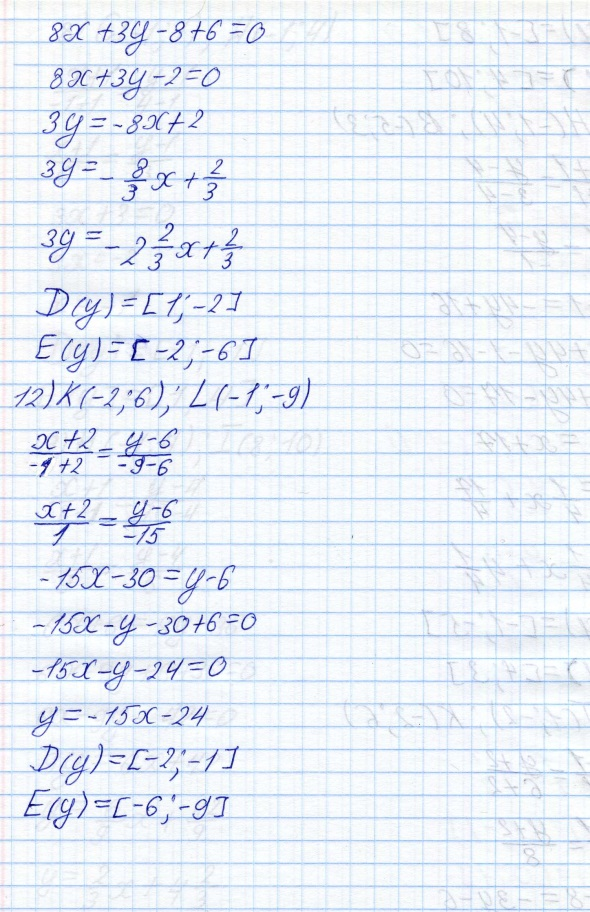 8x+3y-8+6=0
8x+3y-2=0
3y=-8x+2
3y=-8/3x+2/3
3y=-2 2/3x+2/3
D(y)=[1;-2]
E(y)=[-2;-6]
12) K(-2;6); L(-1;-9)
x+2/-1+2=y-6/-9-6
x+2/1=y-6/-15
-15x-30=y-6
-15x-y-30+6=0
-15x-y-24=0
y=-15x-24
D(y)=[-2;-1]
E(y)=[-6;-9]